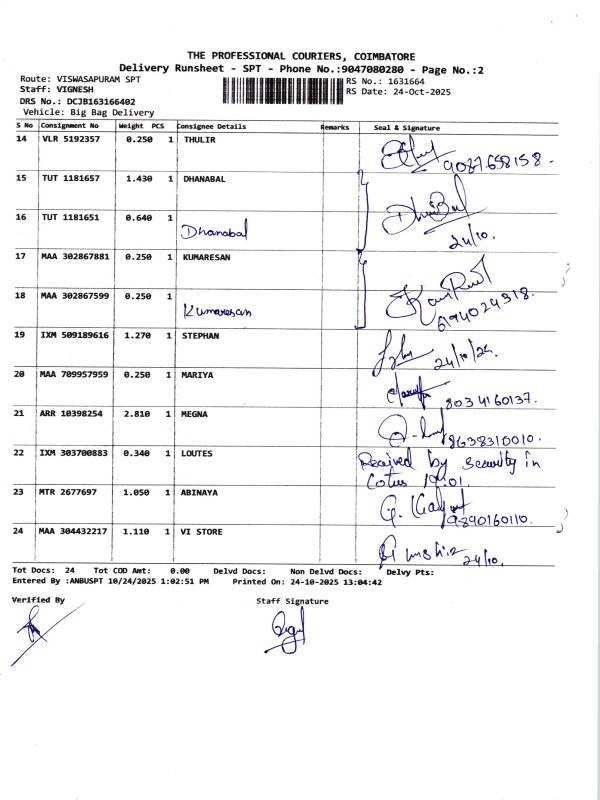 THE PROFESSIONAL COURIERS, COIMBATORE
Delivery Runsheet - SPT - Phone No.:9047080280 - Page No.:2
Route: VISWASAPURAM SPT
RS No.: 1631664
Staff: VIGNESH
RS Date: 24-Oct-2025
DRS No.: DCJB163166402
Vehicle: Big Bag Delivery
S No Consignment No Weight PCS Consignee Details Remarks Seal & Signature
14 VLR 5192357 0.250 1 THULIR
9087658158-
15 TUT 1181657 1.430 1 DHANABAL
16 TUT 1181651 0.640 1
Dhanabal
24/10.
17 MAA 302867881 0.250 1 KUMARESAN
18 MAA 302867599 0.250 1
Kumaresan
6194024318.
19 IXM 509189616 1.270 1 STEPHAN
24/10/25
20 MAA 709957959 0.250 1 MARIYA
8034160137.
21 ARR 10398254 2.810 1 MEGNA
8638310010.
22 IXM 303700883 0.340 1 LOUTES
Received by security in
Lotus
23 MTR 2677697 1.050 1 ABINAYA
9890160110.
24 MAA 304432217 1.110 1 VI STORE
24/10.
Tot Docs: 24 Tot COD Amt: 0.00 Delvd Docs: Non Delvd Docs: Delvy Pts:
Entered By :ANBUSPT 10/24/2025 1:02:51 PM Printed On: 24-10-2025 13:04:42
Verified By Staff Signature